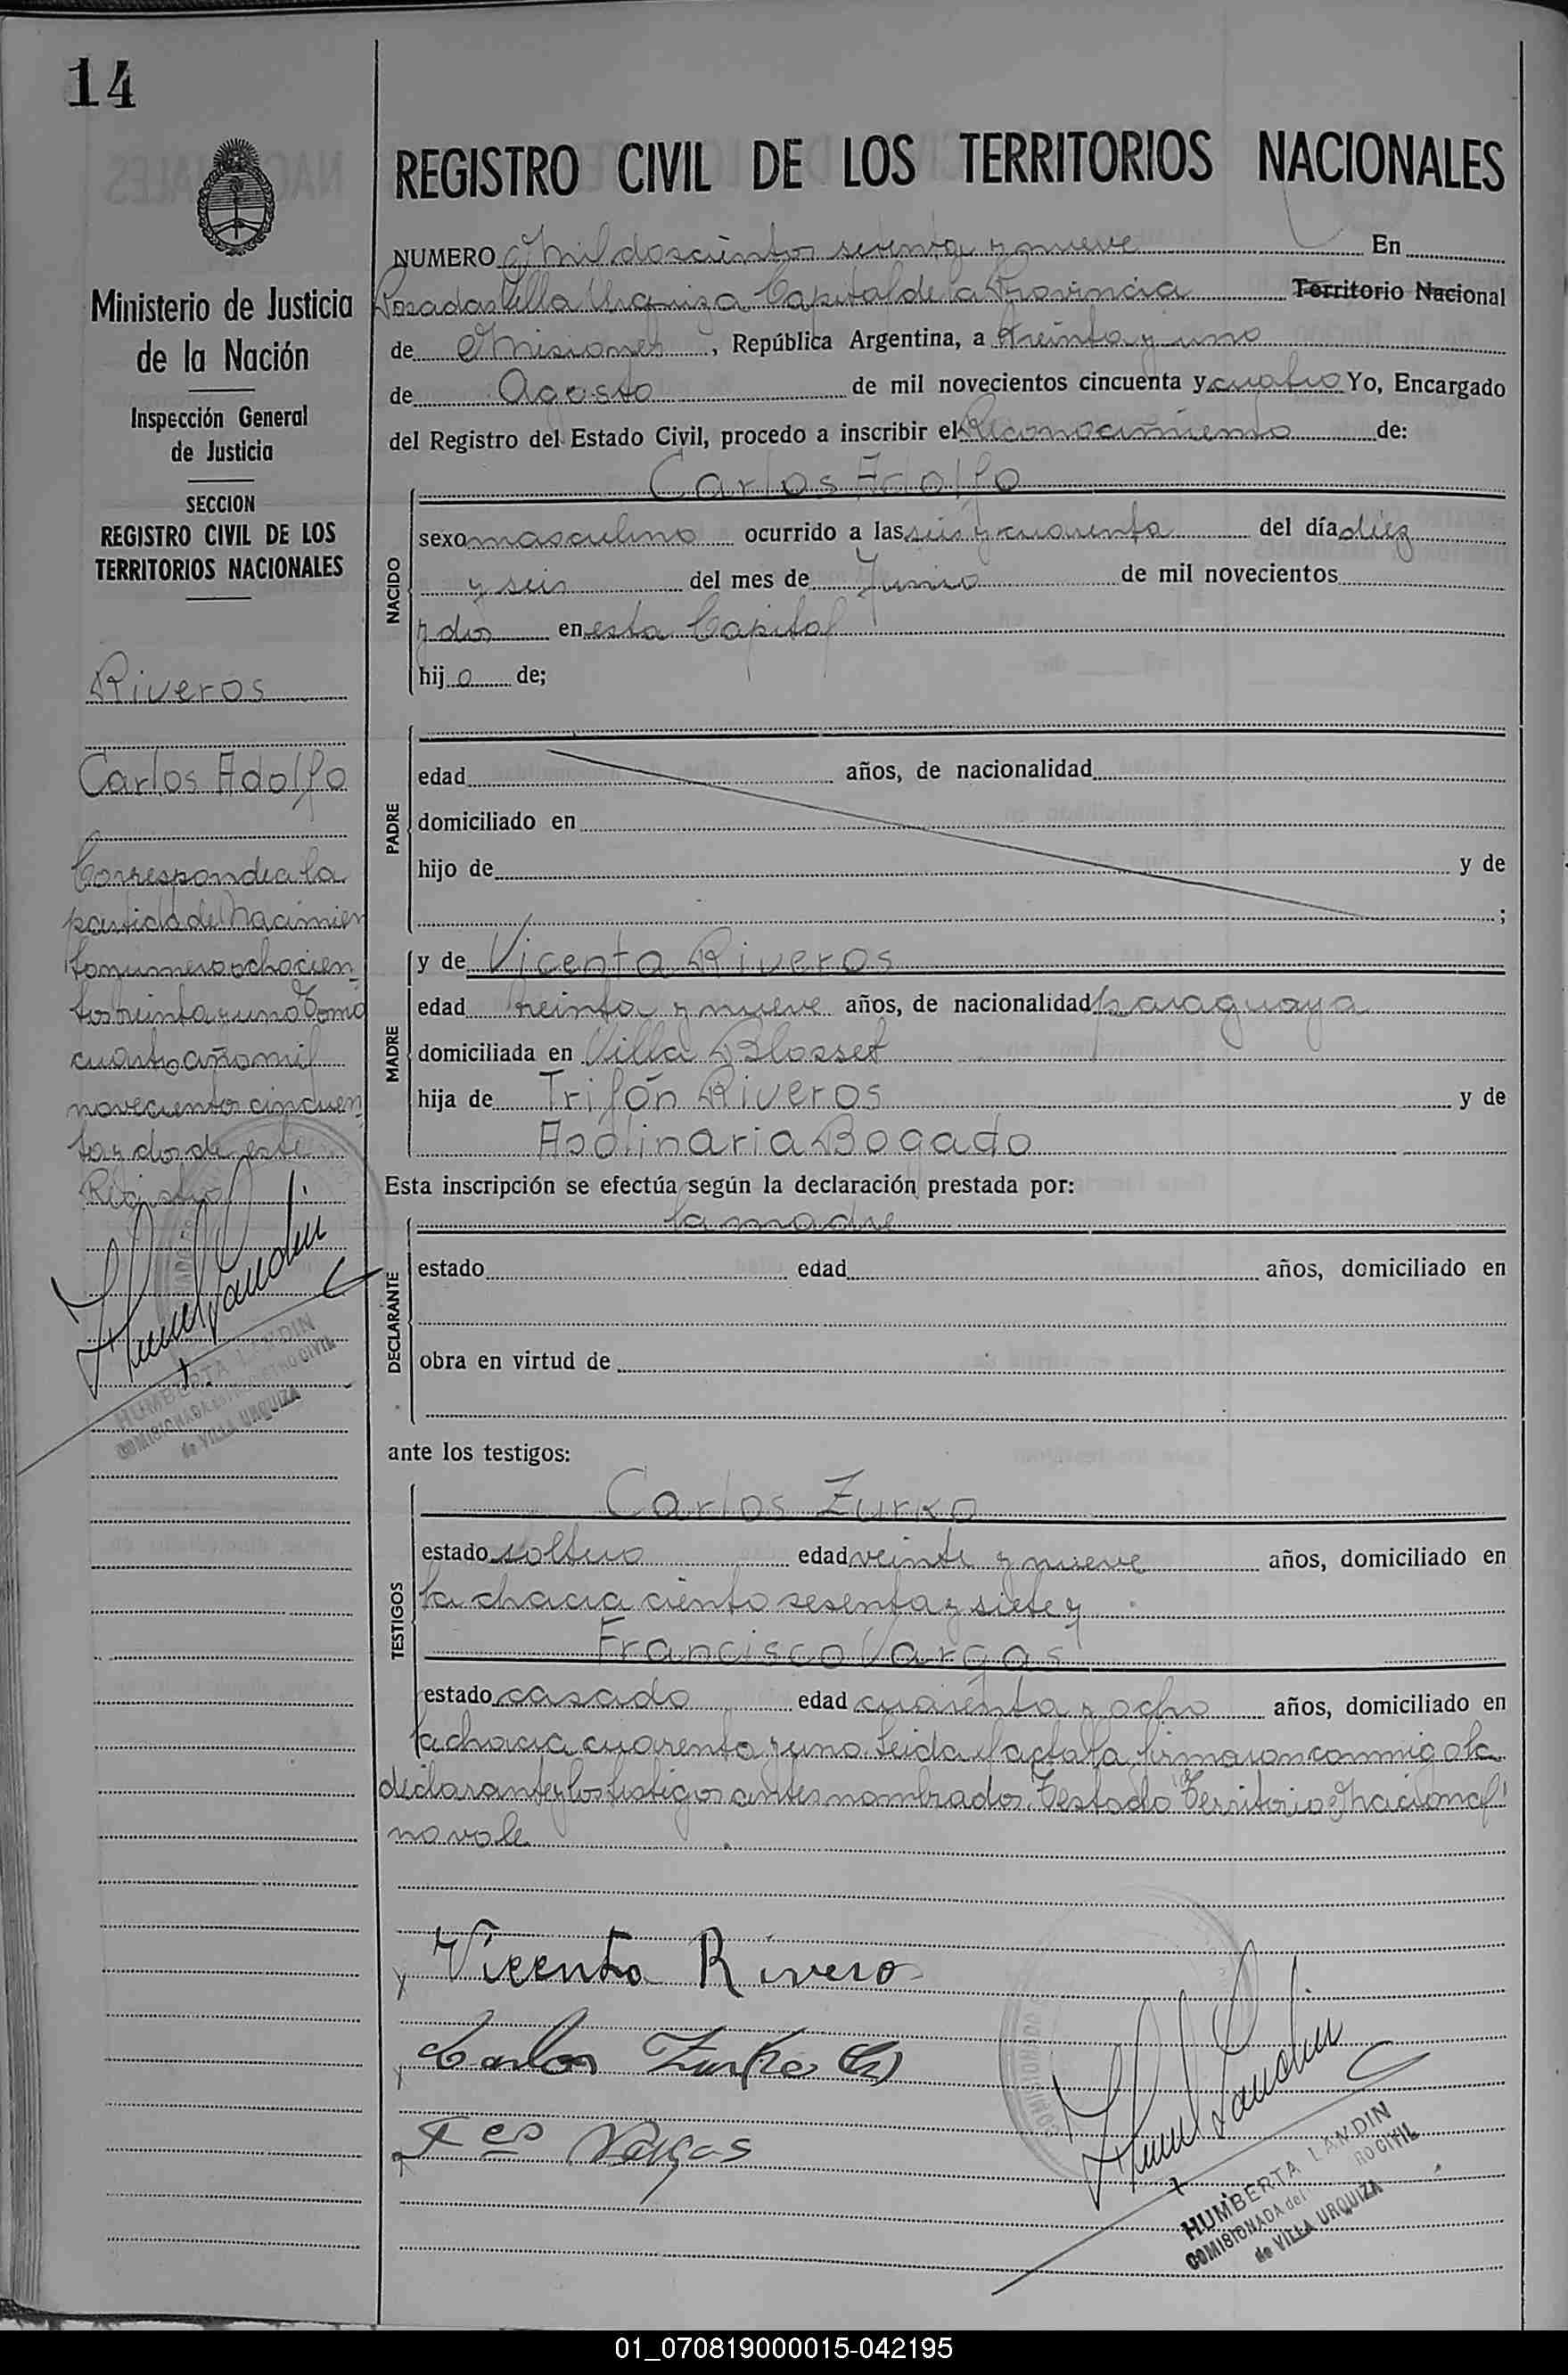 14
REGISTRO CIVIL DE LOS TERRITORIOS NACIONALES
Ministerio de Justicia
de la Nación
Inspección General
de Justicia
SECCION
REGISTRO CIVIL DE LOS
TERRITORIOS NACIONALES
Riveros
Carlos Adolfo
Corresponde a la
partida de Nacimien
to numero ochocien
tos treinta y uno Tomo
cuatro año mil
novecientos cincuen
ta y dos de este
Registro
HUMBERTA LANDIN
COMISIONADA del REGISTRO CIVIL
de VILLA URQUIZA
NUMERO Mil doscientos setenta y nueve En
Posadas Villa Urquiza Capital de la Provincia Territorio Nacional
de Misiones, República Argentina, a treinta y uno
de Agosto de mil novecientos cincuenta y cuatro Yo, Encargado
del Registro del Estado Civil, procedo a inscribir el Reconocimiento de:
Carlos Adolfo
NACIDO
sexo masculino ocurrido a las seis y cuarenta del día diez
y seis del mes de Junio de mil novecientos
y dos en esta Capital
hijo de;
PADRE
edad años, de nacionalidad
domiciliado en
hijo de y de
;
MADRE
y de Vicenta Riveros
edad treinta y nueve años, de nacionalidad paraguaya
domiciliada en Villa Blosset
hija de Trifón Riveros y de
Apolinaria Bogado
Esta inscripción se efectúa según la declaración prestada por:
la madre
DECLARANTE
estado edad años, domiciliado en
obra en virtud de
ante los testigos:
TESTIGOS
Carlos Zurko
estado soltero edad veinte y nueve años, domiciliado en
la chacra ciento sesenta y siete y
Francisco Vargas
estado casado edad cuarenta y ocho años, domiciliado en
la chacra cuarenta y uno. Leida el acta la firmaron conmigo la
declarante y los testigos antes nombrados. Testado "Territorio Nacional"
no vale.
Vicenta Rivero
Carlos Zurko (h)
Fco Vargas
HUMBERTA LANDIN
COMISIONADA del ROCIVIL
de VILLA URQUIZA
01_070819000015-042195